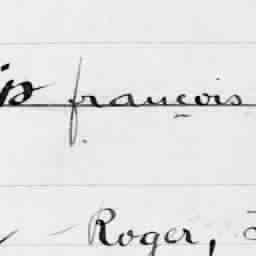 françois
Roger,